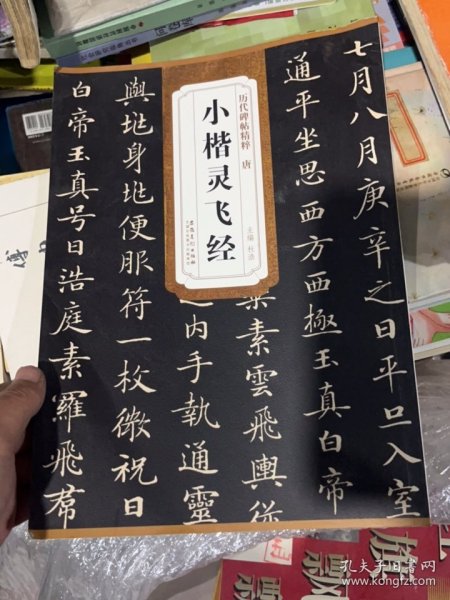 七月八月庚辛之日平旦入室
通平坐思西方西極玉真白帝
素雲飛輿從
之内手執通靈
與玼身玼便服符一枚微祝曰
白帝玉真号曰浩庭素羅飛裙
历代碑帖精粹 唐
小楷灵飞经
主编 杜浩
孔夫子旧书网
www.kongfz.com